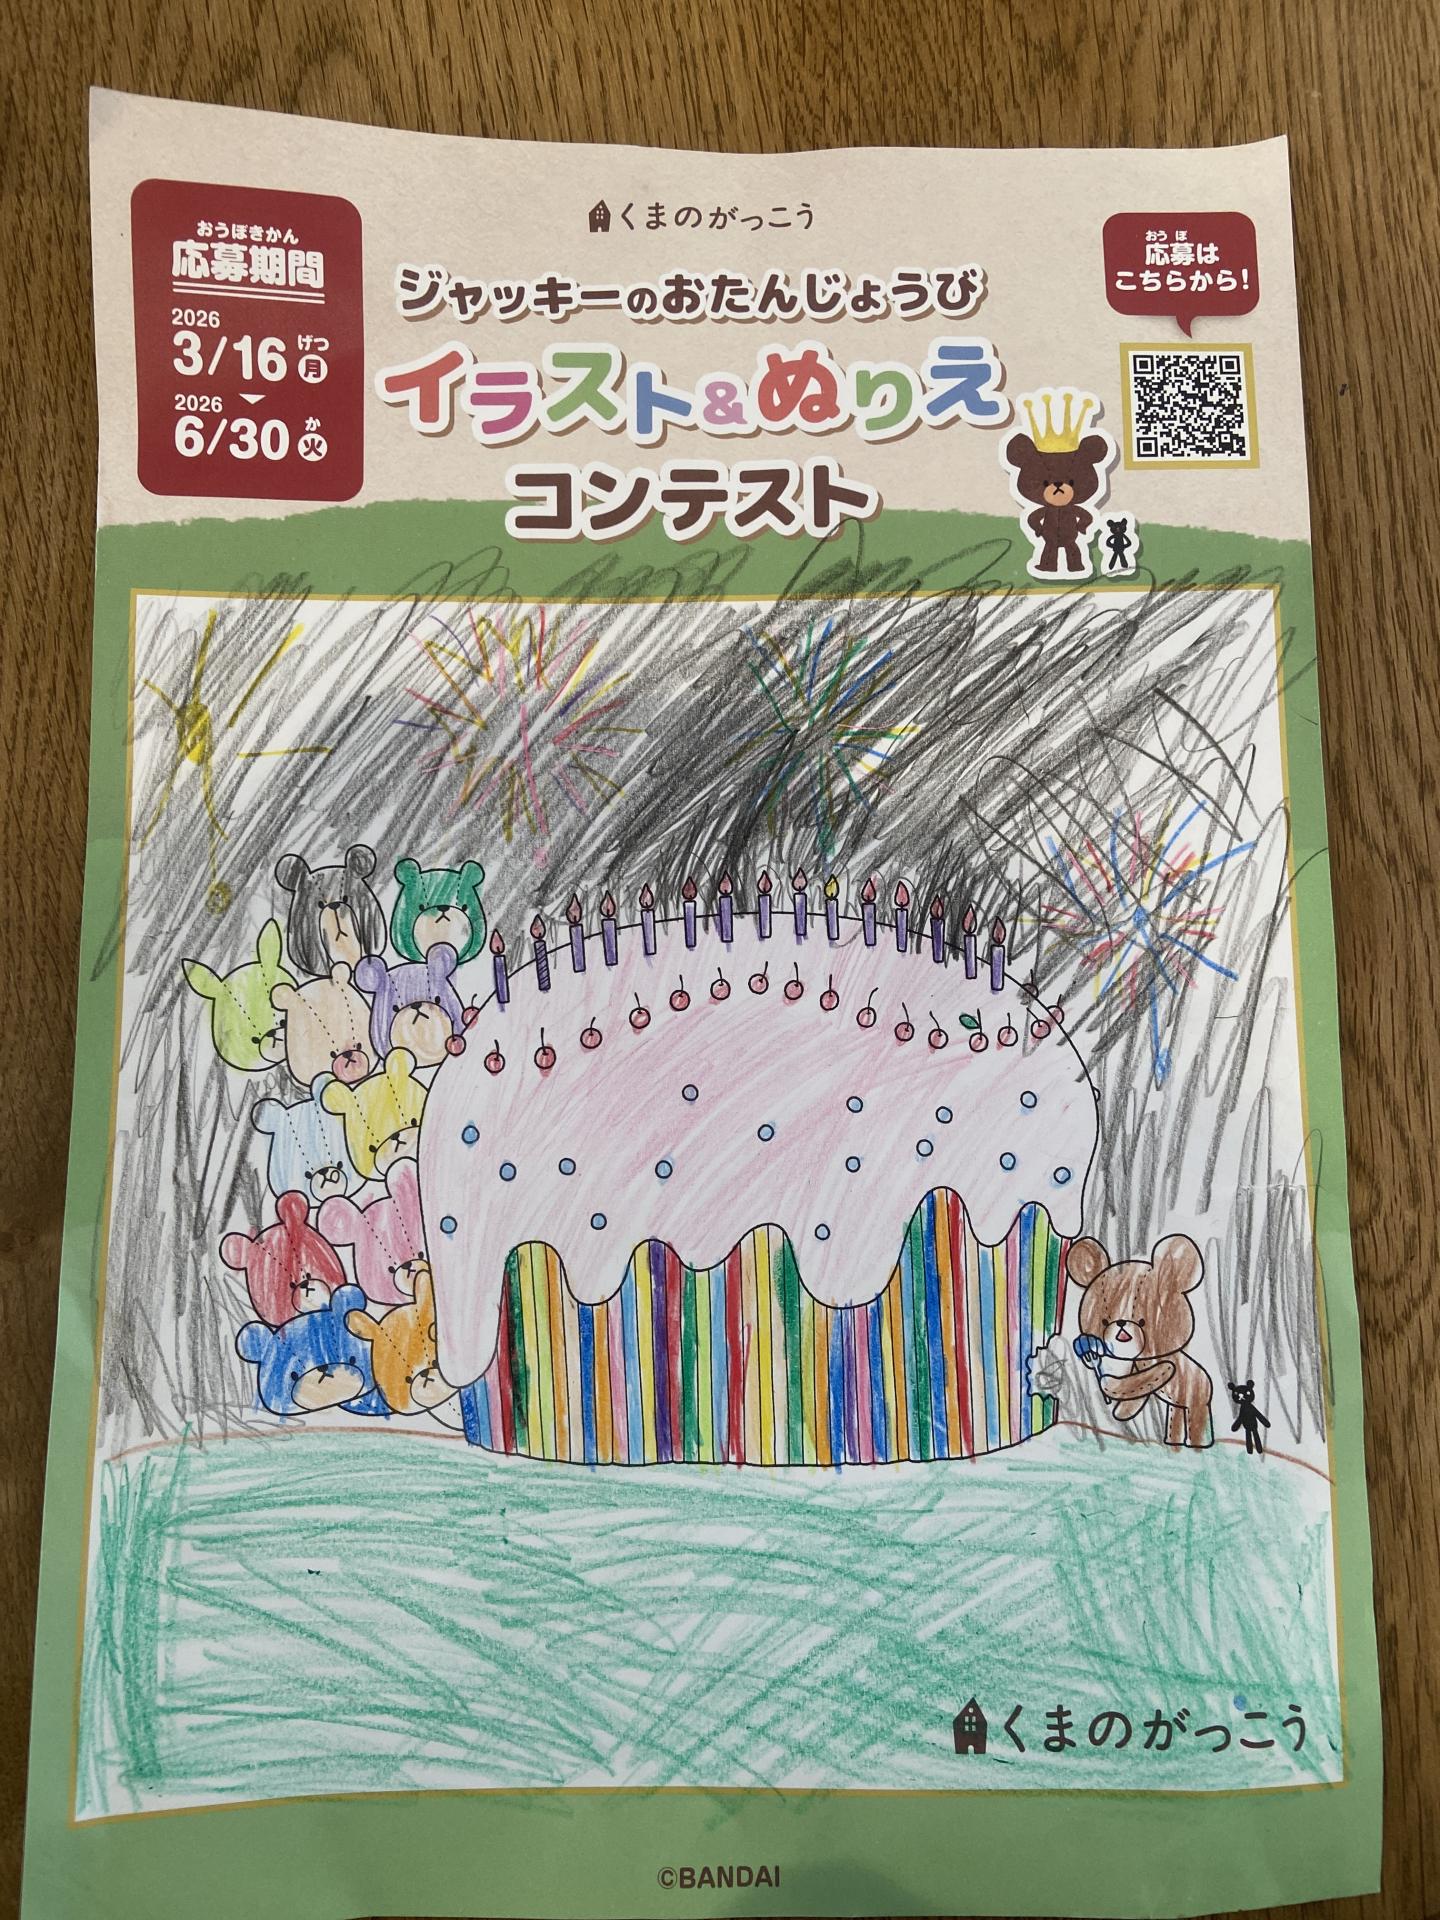 おうぼきかん
応募期間
2026
3/16 げつ 月
2026
6/30 か 火
くまのがっこう
ジャッキーのおたんじょうび
イラスト&ぬりえ
コンテスト
おうぼ
応募は
こちらから!
くまのがっこう
©BANDAI